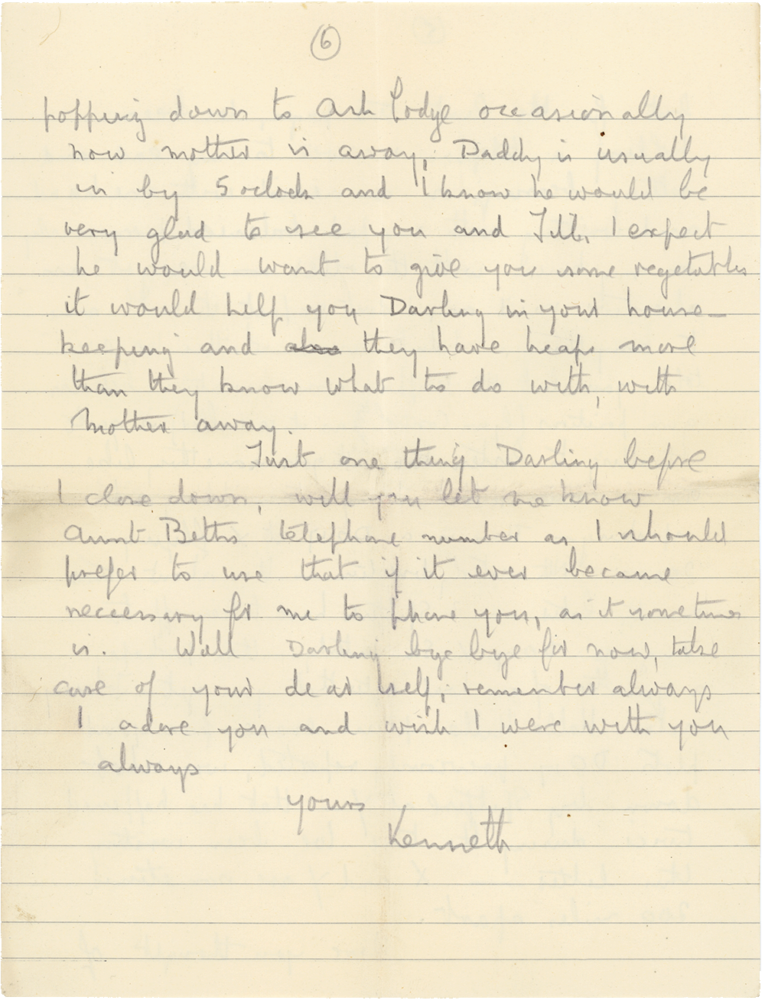 6
popping down to Ash Lodge occasionally
now mother is away, Daddy is usually
in by 5 oclock and I know he would be
very glad to see you and Jill, I expect
he would want to give you some vegetables
it would help you Darling in your house-
keeping and also they have heaps more
than they know what to do with, with
Mother away.
Just one thing Darling before
I close down, will you let me know
Aunt Beths telephone number as I should
prefer to use that if it ever became
neccessary for me to phone you, as it sometimes
is. Well Darling bye bye for now, take
care of your dear self, remember always
I adore you and wish I were with you
always
yours
Kenneth